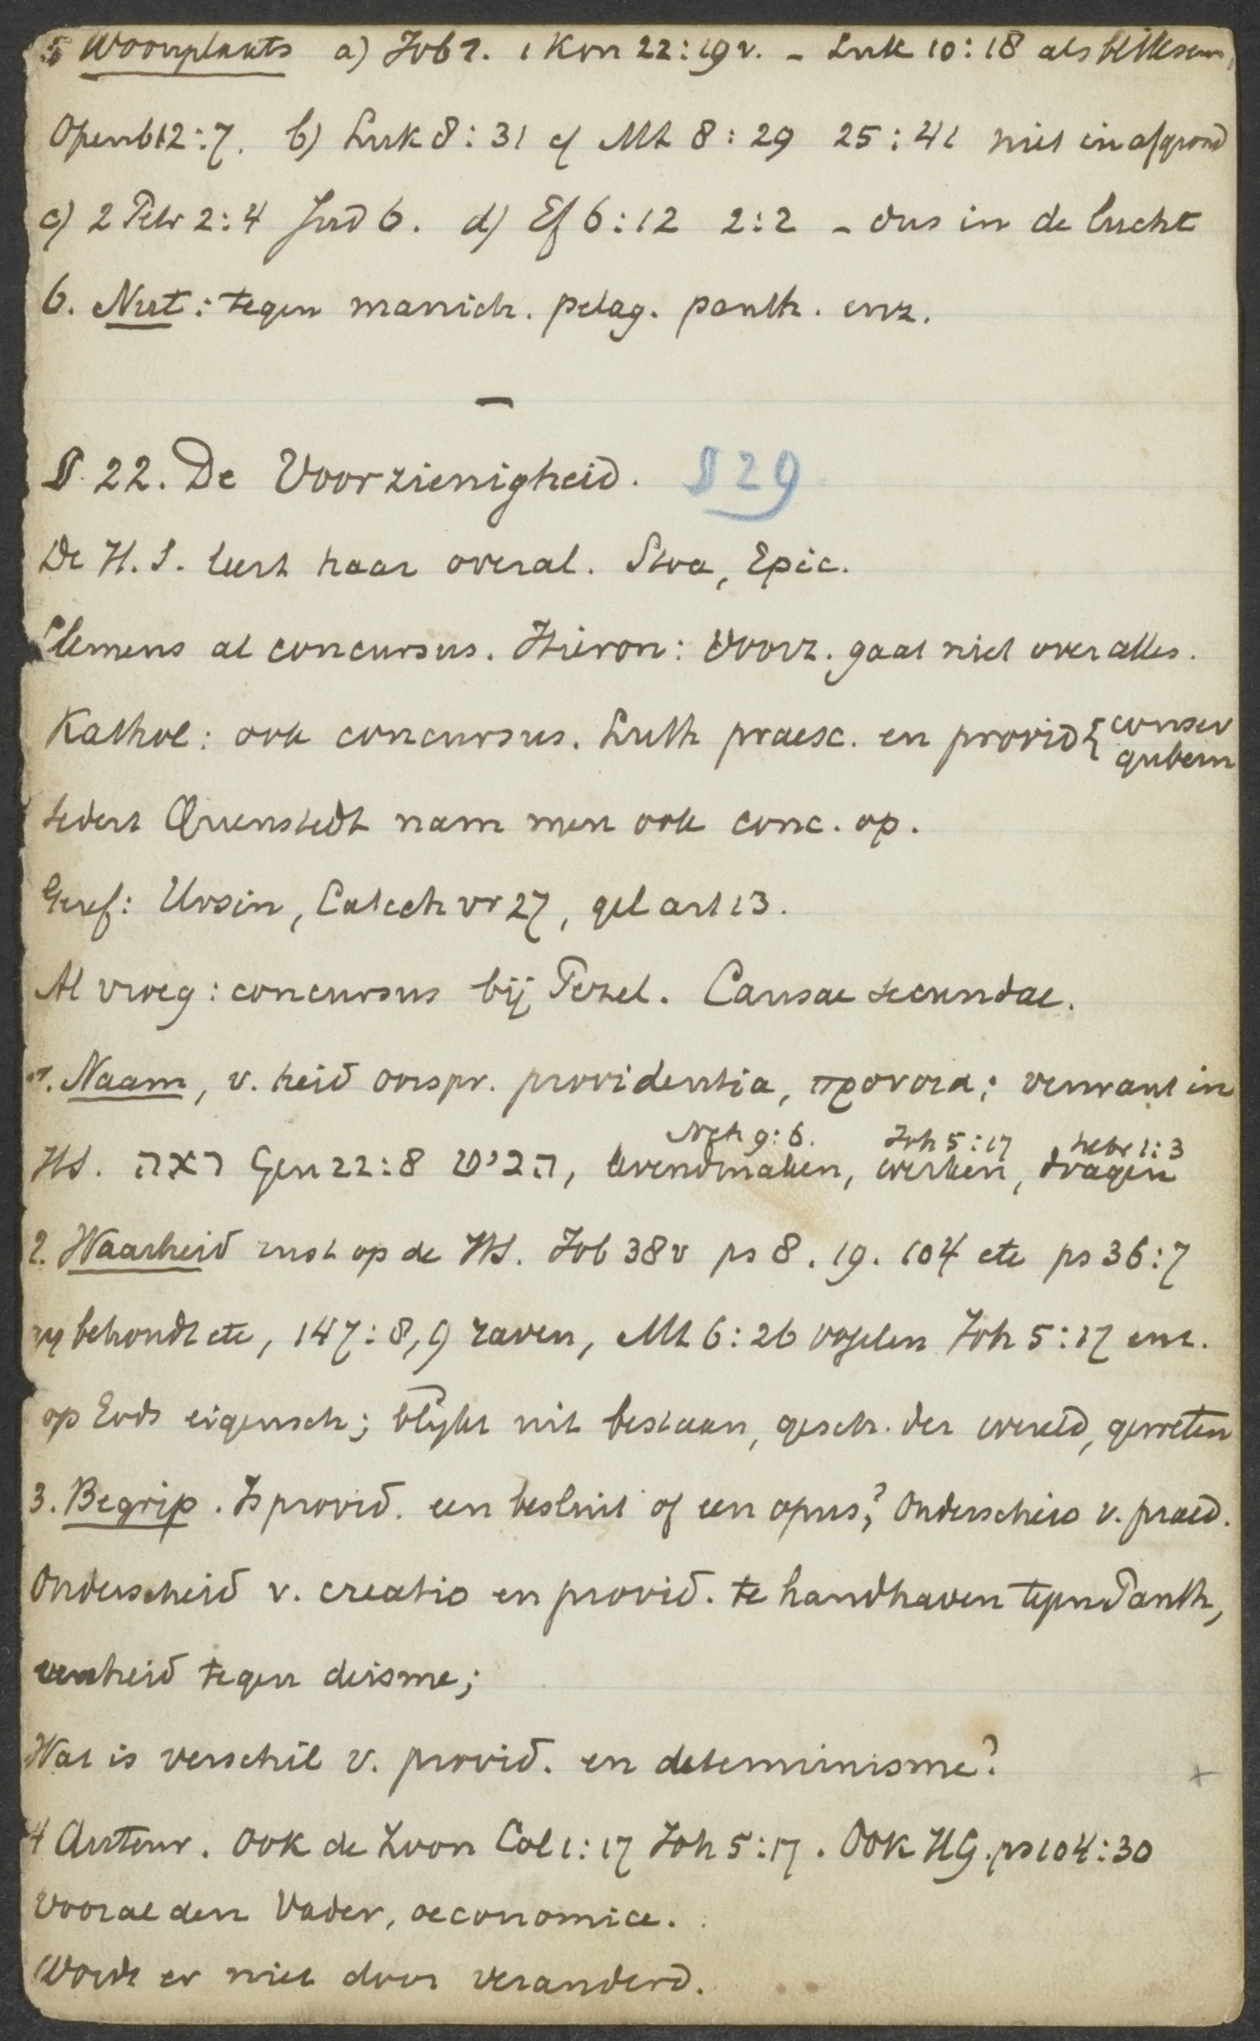 5 Woonplaats a) Job 1. 1 Kon 22:19v. – Luk 10:18 als bliksem,
Openb 12:7. b) Luk 8:31 cf Mt 8:29 25:41 niet in afgrond
c) 2 Petr 2:4 Jud 6. d) Ef 6:12 2:2 – dus in de lucht
6. Nut: tegen manich. pelag. panth. enz.
—
§ 22. De Voorzienigheid. § 29
De H.S. leert haar overal. Stoa, Epic.
Clemens al concursus. Hieron: Voorz. gaat niet over alles.
Kathol: ook concursus. Luth praesc. en provid { conserv
gubern
sedert Quenstedt nam men ook conc. op.
Geref: Ursin, Catech vr 27, gel art 13.
Al vroeg: concursus bij Pezel. Causae secundae.
1. Naam, v. heid oorspr. providentia, προνοια; verwant in
Neh 9:6. Joh 5:17 Hebr 1:3
HS. ראה Gen 22:8 הביט, levendmaken, werken, dragen
2. Waarheid rust op de HS. Job 38v ps 8. 19. 104 etc ps 36:7
gy behoudt etc, 147:8,9 raven, Mt 6:26 vogelen Joh 5:17 enz.
op Gods eigensch; blijkt uit bestaan, gesch. der wereld, geweten
3. Begrip. Is provid. een besluit of een opus? Onderscheid v. praed.
Onderscheid v. creatio en provid. te handhaven tegen Panth,
eenheid tegen deisme;
Wat is verschil v. provid. en determinisme?
4 Auteur. Ook de Zoon Col 1:17 Joh 5:17. Ook HG. ps 104:30
Vooral den Vader, oeconomice.
Wordt er niet door veranderd.